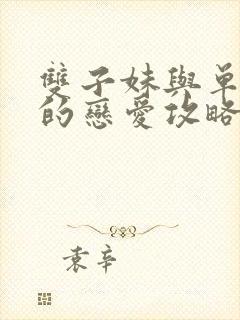 雙子妹與單
的戀愛攻略
袁辛